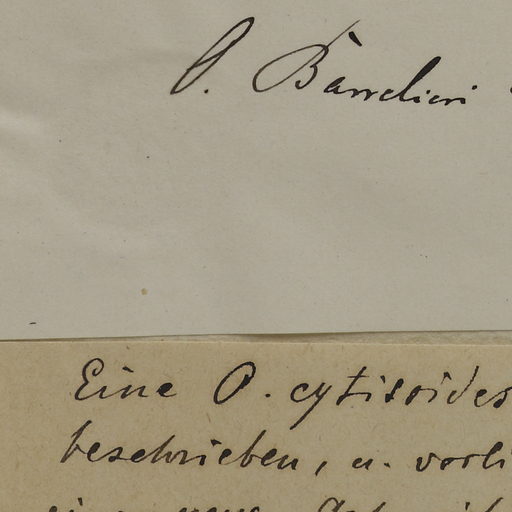 O. Barrelieri
Eine O. cytisoides
beschrieben, u. vorli